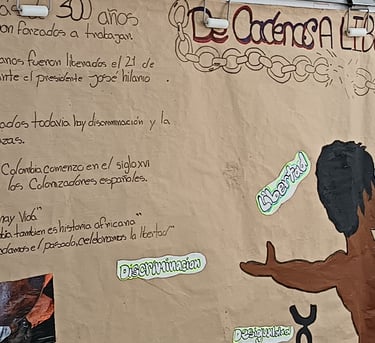 300 años
De Cadenas A LIB
on forzados a trabajar.
anos fueron liberados el 21 de
ante el presidente José hilario
ados todavia hay discriminación y la
zas.
Colombia comenzo en el siglo xvi
los Colonizadores españoles.
hay Vida"
bia tambien es historia africana"
damos el pasado, celebramos la libertad"
Libertad
Discriminacion
Desigualdad